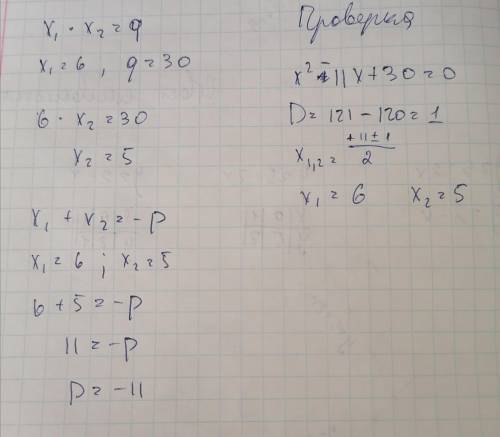 x₁ · x₂ = q
x₁ = 6 , q = 30
6 · x₂ = 30
x₂ = 5
x₁ + x₂ = -p
x₁ = 6 ; x₂ = 5
6 + 5 = -p
11 = -p
p = -11
Проверка
x² - 11x + 30 = 0
D = 121 - 120 = 1
x₁,₂ = +11 ± 1 / 2
x₁ = 6 x₂ = 5